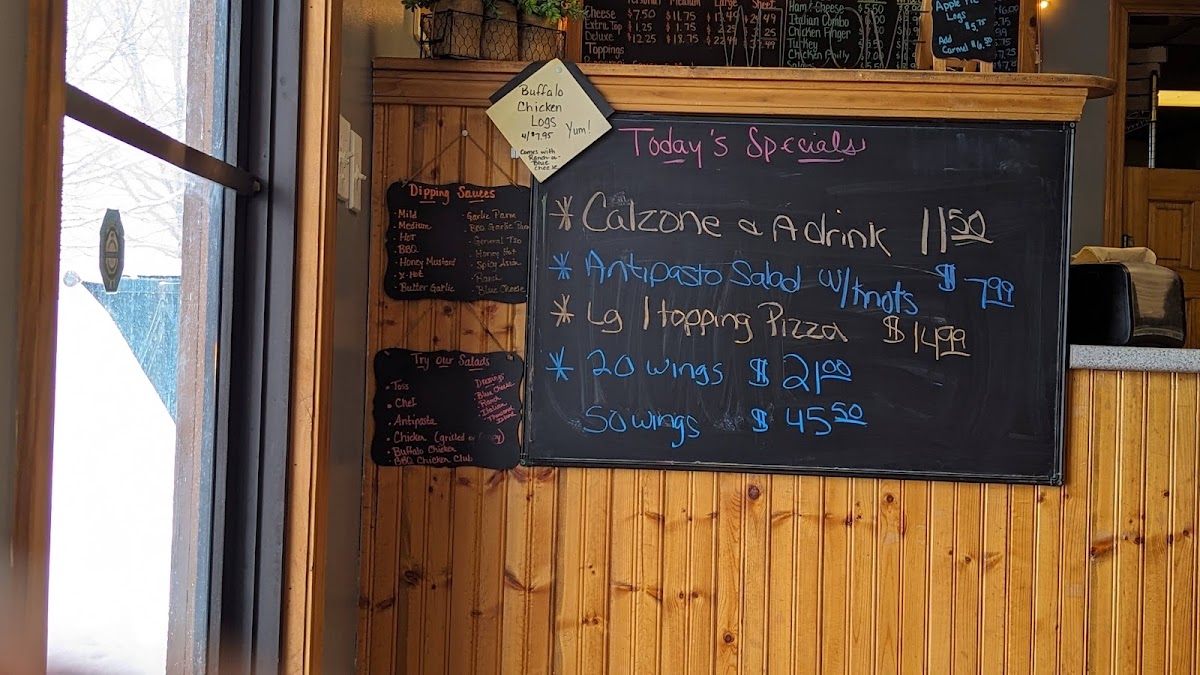 Large Sheet
Cheese $7.50 $11.75
Extra Top $1.25 $1.75
Deluxe $12.25 $18.75
Toppings
Ham & Cheese $5.50
Italian Combo
Chicken Finger
Turkey
Chicken Philly
Apple Pie
Logs
$5.75
Add
Carmel $6.50
Buffalo
Chicken
Logs
4/$7.95 Yum!
Comes with
Ranch or
Blue
cheese
Dipping Sauces
- Mild
- Medium
- Hot
- BBQ
- Honey Mustard
- Butter Garlic
- Garlic Parm
- BBQ Garlic Parm
- General Tso
- Honey Hot
- Spicy Asian
- Ranch
- Blue Cheese
Try Our Salads
• Toss
• Chef
• Antipasta
• Chicken (grilled or Crispy)
• Buffalo Chicken
• BBQ Chicken Club
Dressings
• Blue Cheese
• Ranch
• Italian
• Thousand
Island
Today's Specials
* Calzone & A drink 11.50
* Antipasto Salad w/Knots $7.99
* Lg 1 topping Pizza $14.99
* 20 wings $21.00
50 wings $45.50